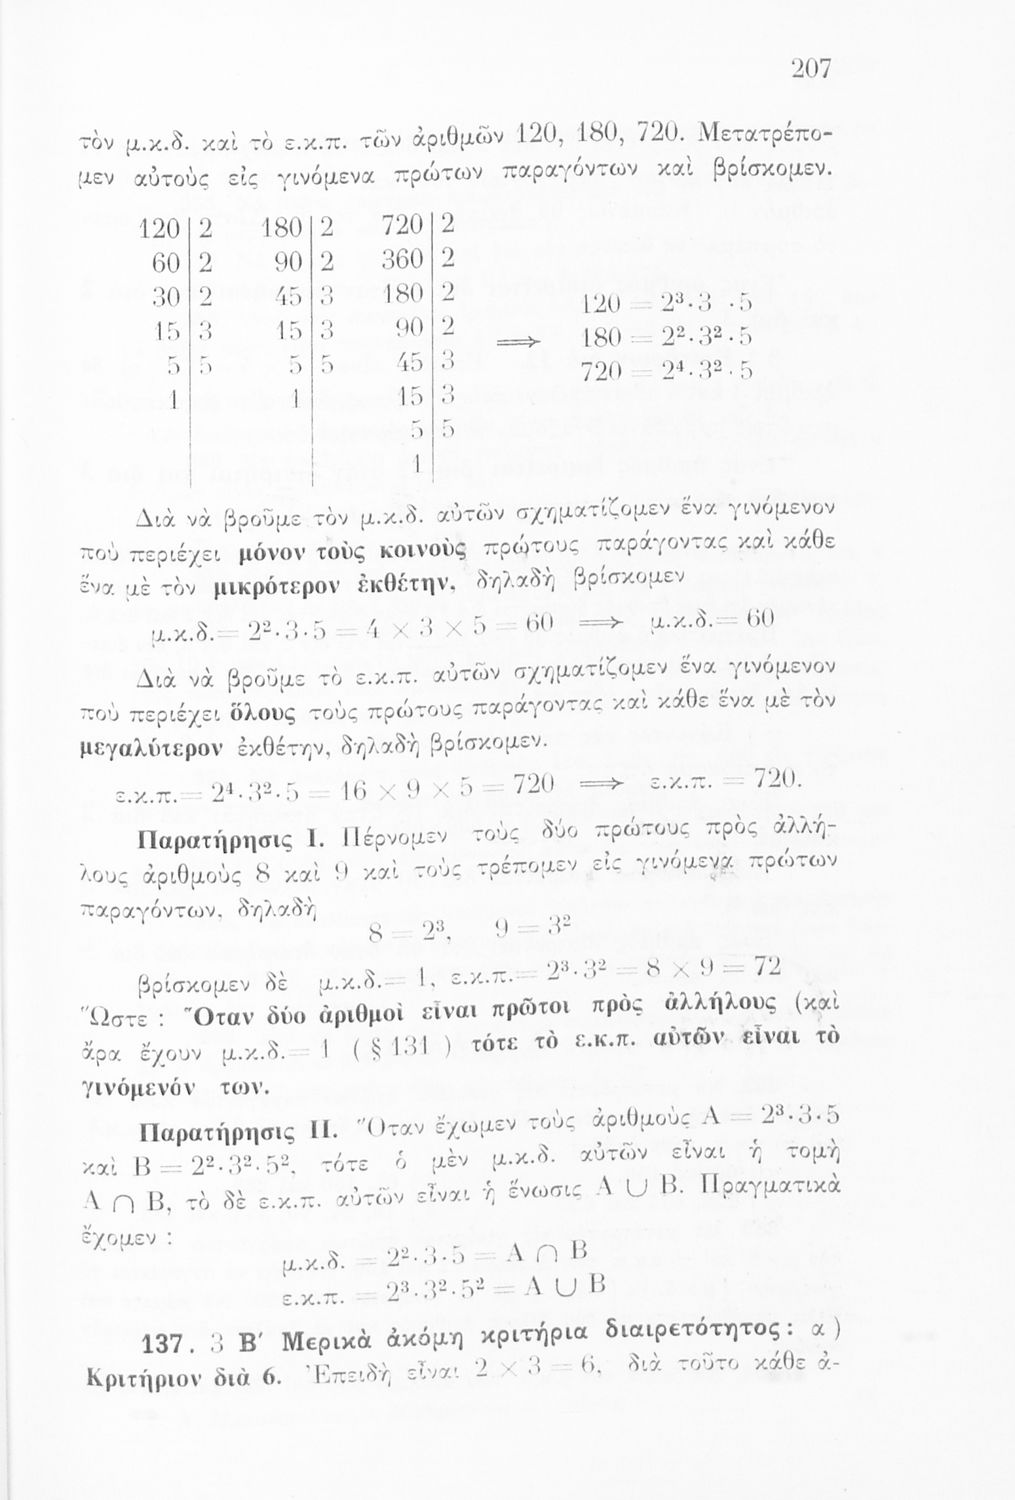 207
τὸν μ.κ.δ. καὶ τὸ ε.κ.π. τῶν ἀριθμῶν 120, 180, 720. Μετατρέπο-
μεν αὐτοὺς εἰς γινόμενα πρώτων παραγόντων καὶ βρίσκομεν.
120 | 2 180 | 2 720 | 2
60 | 2 90 | 2 360 | 2
30 | 2 45 | 3 180 | 2 120 = 2³·3 ·5
15 | 3 15 | 3 90 | 2 ⟹ 180 = 2²·3²·5
5 | 5 5 | 5 45 | 3 720 = 2⁴·3²·5
1 | 1 | 15 | 3
5 | 5
1 |
Διὰ νὰ βροῦμε τὸν μ.κ.δ. αὐτῶν σχηματίζομεν ἕνα γινόμενον
ποὺ περιέχει μόνον τοὺς κοινοὺς πρώτους παράγοντας καὶ κάθε
ἕνα μὲ τὸν μικρότερον ἐκθέτην, δηλαδὴ βρίσκομεν
μ.κ.δ. = 2²·3·5 = 4 × 3 × 5 = 60 ⟹ μ.κ.δ. = 60
Διὰ νὰ βροῦμε τὸ ε.κ.π. αὐτῶν σχηματίζομεν ἕνα γινόμενον
ποὺ περιέχει ὅλους τοὺς πρώτους παράγοντας καὶ κάθε ἕνα μὲ τὸν
μεγαλύτερον ἐκθέτην, δηλαδὴ βρίσκομεν.
ε.κ.π. = 2⁴·3²·5 = 16 × 9 × 5 = 720 ⟹ ε.κ.π. = 720.
Παρατήρησις I. Πέρνομεν τοὺς δύο πρώτους πρὸς ἀλλή-
λους ἀριθμοὺς 8 καὶ 9 καὶ τοὺς τρέπομεν εἰς γινόμενα πρώτων
παραγόντων, δηλαδὴ
8 = 2³, 9 = 3²
βρίσκομεν δὲ μ.κ.δ. = 1, ε.κ.π. = 2³·3² = 8 × 9 = 72
Ὥστε : Ὅταν δύο ἀριθμοὶ εἶναι πρῶτοι πρὸς ἀλλήλους (καὶ
ἄρα ἔχουν μ.κ.δ. = 1 ( § 131 ) τότε τὸ ε.κ.π. αὐτῶν εἶναι τὸ
γινόμενόν των.
Παρατήρησις II. Ὅταν ἔχωμεν τοὺς ἀριθμοὺς Α = 2³·3·5
καὶ Β = 2²·3²·5², τότε ὁ μὲν μ.κ.δ. αὐτῶν εἶναι ἡ τομὴ
Α ∩ Β, τὸ δὲ ε.κ.π. αὐτῶν εἶναι ἡ ἕνωσις Α ∪ Β. Πραγματικὰ
ἔχομεν :
μ.κ.δ. = 2²·3·5 = Α ∩ Β
ε.κ.π. = 2³·3²·5² = Α ∪ Β
137. 3 Β′ Μερικὰ ἀκόμη κριτήρια διαιρετότητος: α)
Κριτήριον διὰ 6. Ἐπειδὴ εἶναι 2 × 3 = 6, διὰ τοῦτο κάθε ἀ-